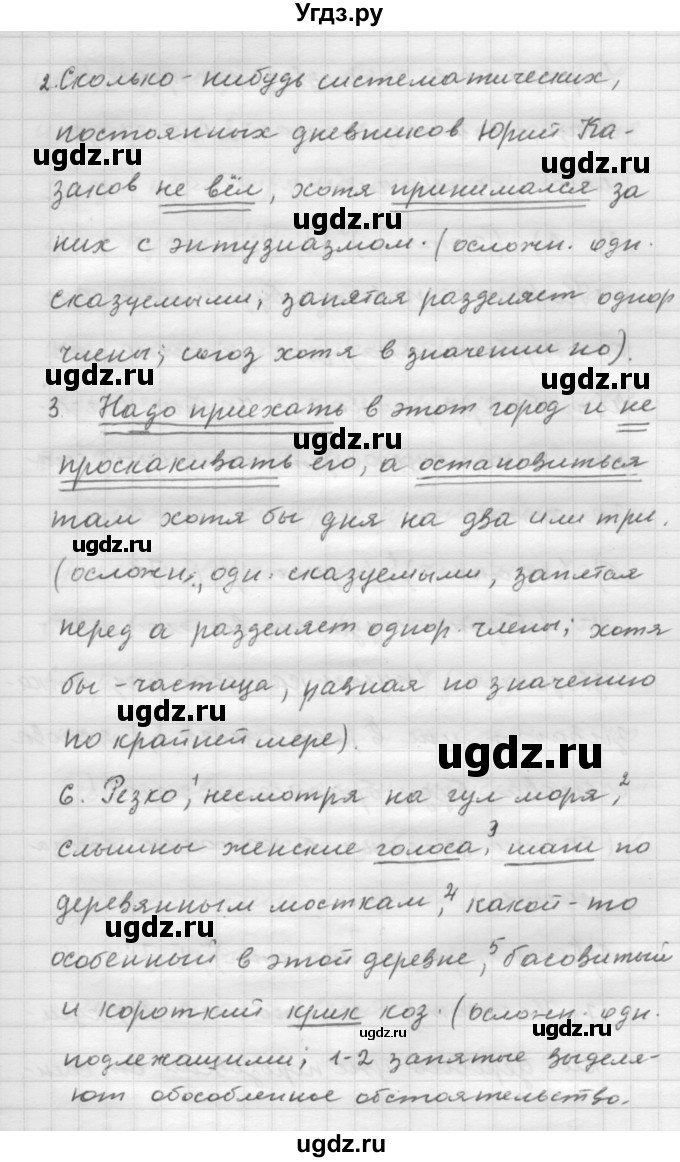 Угдз.ру
2. Сколько-нибудь систематических,
постоянных дневников Юрий Ка-
ugdz.ru ugdz.ru
заков не вёл, хотя принимался за
ugdz.ru
них с энтузиазмом. (осложн. одн.
сказуемыми, запятая разделяет однор
члены; союз хотя в значении но).
ugdz.ru ugdz.ru
3. Надо приехать в этот город и не
проскакивать его, а остановиться
ugdz.ru
там хотя бы дня на два или три.
ugdz.ru
(осложн., одн. сказуемыми, запятая
ugdz.ru
перед а разделяет однор. члены; хотя
бы - частица, равная по значению
ugdz.ru
по крайней мере).
ugdz.ru
6. Резко,1 несмотря на гул моря,2
слышны женские голоса,3 шаги по
деревянным мосткам,4 какой-то
ugdz.ru ugdz.ru
особенный в этой деревне,5 басовитый
и короткий крик коз. (осложн. одн.
ugdz.ru ugdz.ru
подлежащими; 1-2 запятые выделя-
ют обособленное обстоятельство.
ugdz.ru